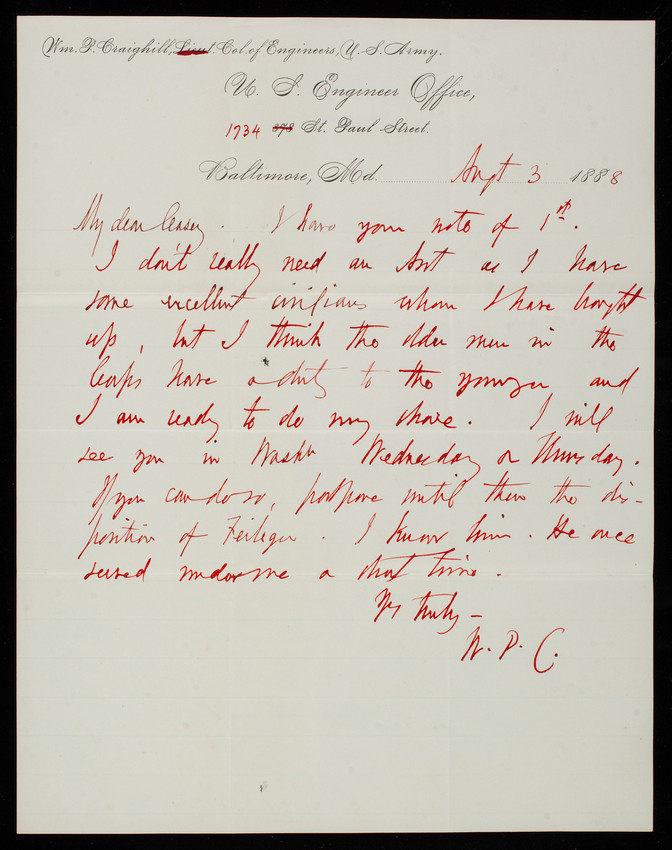 Wm. P. Craighill, Lieut. Col. of Engineers, U. S. Army.
U. S. Engineer Office,
1734 378 St. Paul Street.
Baltimore, Md. Augt 3 1888
My dear Casey. I have your note of 1st.
I don't really need an Asst as I have
some excellent civilians whom I have brought
up, but I think the older men in the
Corps have a duty to the younger and
I am ready to do my share. I will
see you in Washn Wednesday or Thursday.
If you can do so, postpone until then the dis-
position of Fieberger. I know him. He once
served under me a short time.
Yrs truly -
W. P. C.